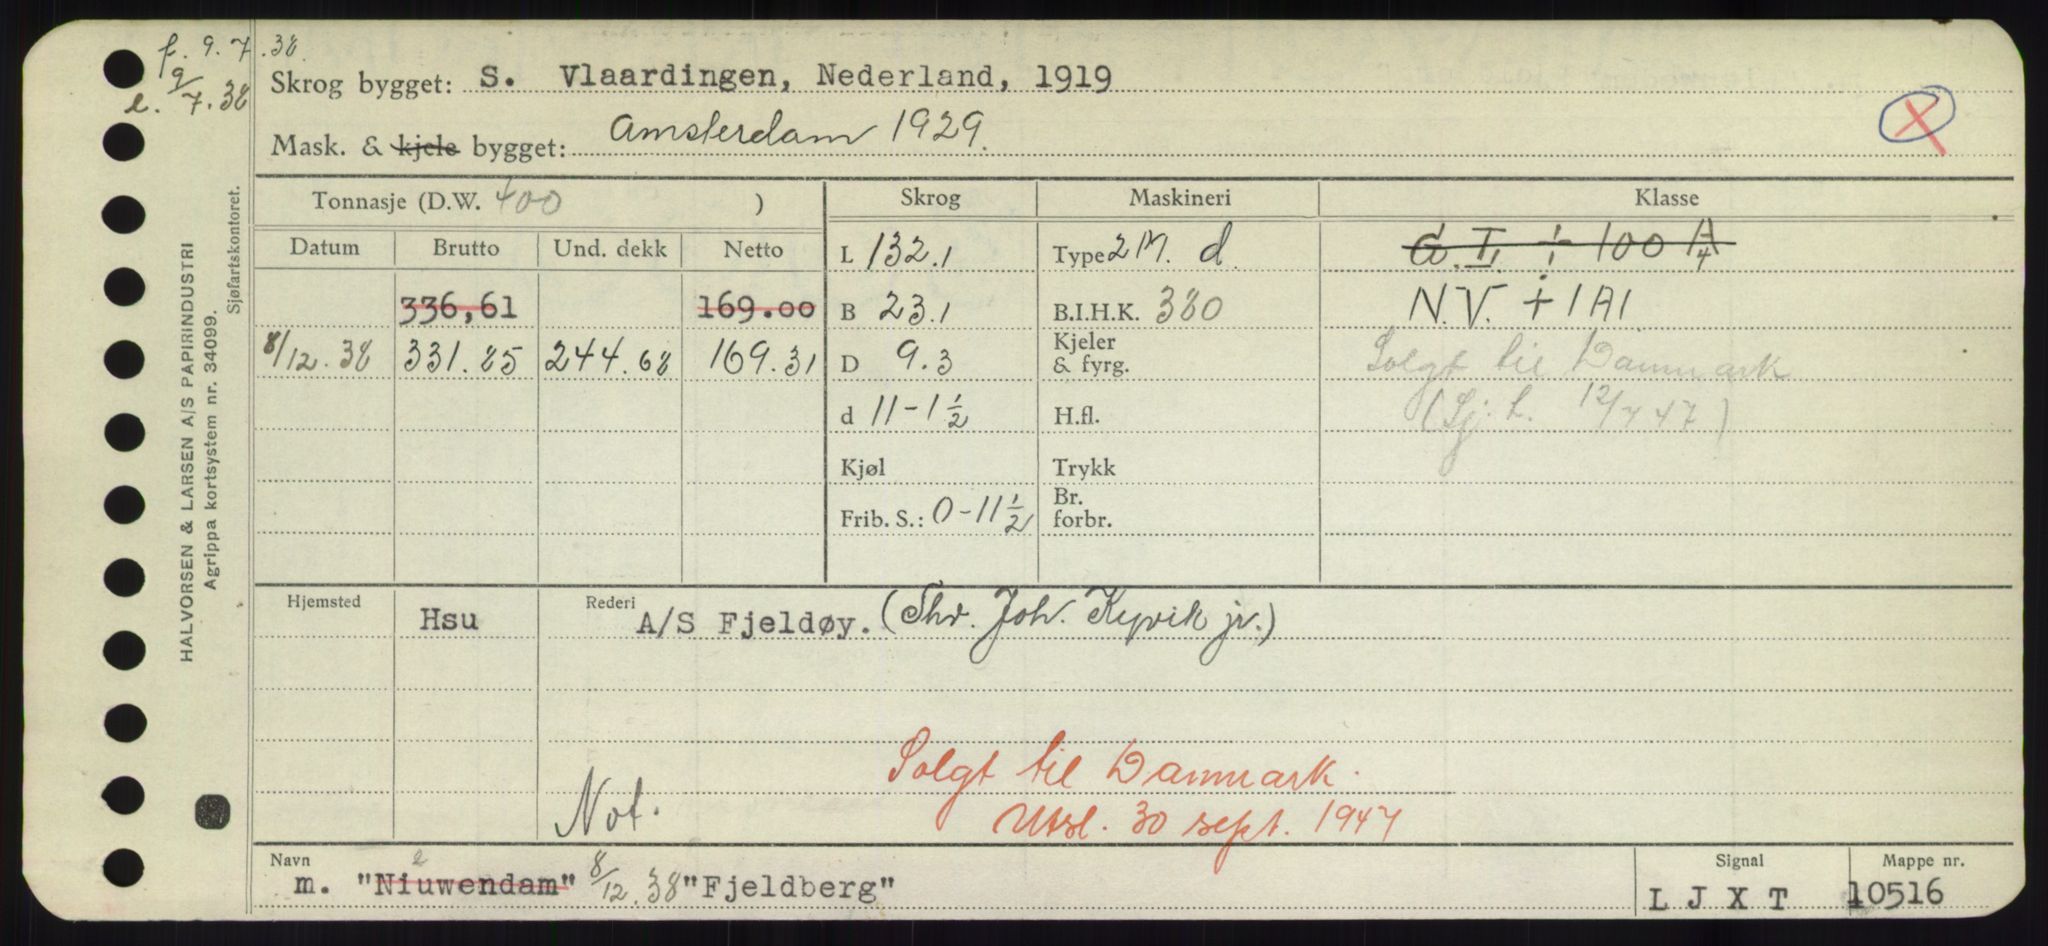 f. 9.7.38.
e. 9/7.38
Skrog bygget: S. Vlaardingen, Nederland, 1919
Mask. & kjele bygget: Amsterdam 1929.
HALVORSEN & LARSEN A/S PAPIRINDUSTRI
Agrippa kortsystem nr. 34099.
Sjøfartskontoret.
Tonnasje (D.W. 400 ) Skrog Maskineri Klasse
Datum Brutto Und. dekk Netto L 132.1 Type 2 M. d. G.L. + 100 A/4
336,61 169.00 B 23.1 B.I.H.K. 380 N.V. + 1A1
8/12.38 331.85 244.68 169.31 D 9.3 Kjeler & fyrg. Solgt til Danmark
d 11-1 1/2 H.fl. (Sj.h. 12/7 47)
Kjøl Trykk
Frib. S.: 0-11 1/2 Br. forbr.
Hjemsted Hsu Rederi A/S Fjeldøy. (Thv. Joh. Kyvik jr.)
Solgt til Danmark.
Not. Utsl. 30 sept. 1947
Navn Signal Mappe nr.
m. "Niuwendam" 8/12.38 "Fjeldberg" L J X T 10516